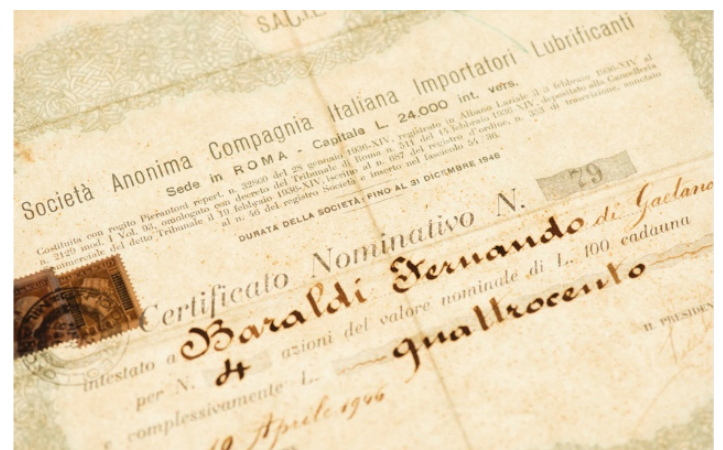 S.A.C.I.L.
Società Anonima Compagnia Italiana Importatori Lubrificanti
Sede in ROMA - Capitale L. 24.000 int. vers.
Costituita con rogito Pierantoni repert. n. 32800 del 28 gennaio 1936-XIV, registrato in Albano Laziale il 3 febbraio 1936-XIV al
n. 2129 mod. I Vol. 93, omologato con decreto del Tribunale di Roma n. 511 del 15 febbraio 1936-XIV, depositato alla Cancelleria
Commerciale del detto Tribunale il 19 febbraio 1936-XIV, iscritto al n. 687 del registro d'ordine, n. 353 di trascrizione, annotato
al n. 46 del registro Società e inserto nel fascicolo 51/36.
DURATA DELLA SOCIETÀ: FINO AL 31 DICEMBRE 1946
Certificato Nominativo N. 79
intestato a Baraldi Fernando di Gaetano
per N. 4 azioni del valore nominale di L. 100 cadauna
e complessivamente L. quattrocento
IL PRESIDEN
19 Aprile 1946